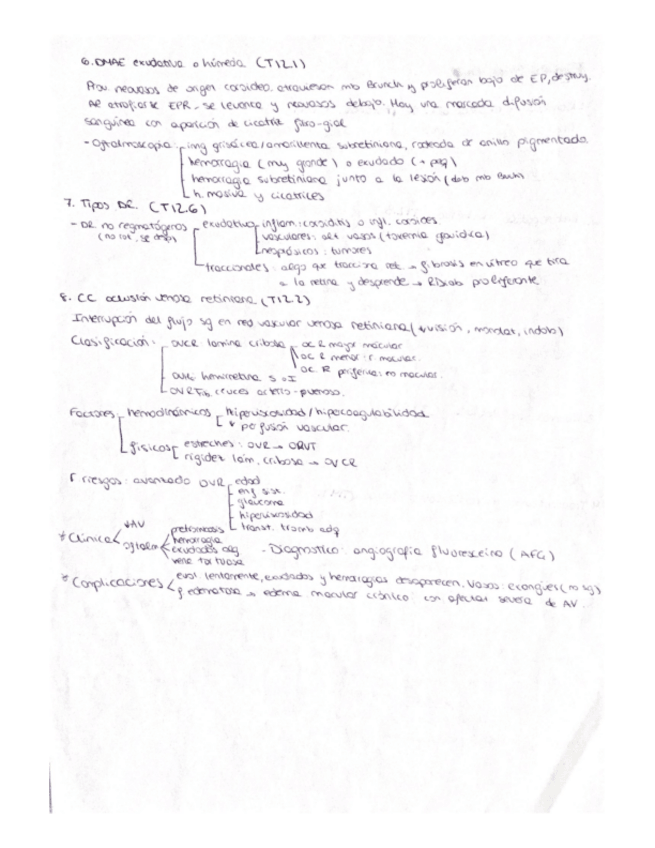 6. DMAE exudativa o húmeda (T12.1)
Prov neovasos de origen coroideo. atraviesan mb Bruch y proliferan bajo de EP, destruy.
Al atrofiarse EPR - se levanta y neovasos debajo. Hay una marcada difusión
sanguínea con aparición de cicatriz fibro-glial
- Oftalmoscopia: img grisácea/amarillenta subretiniana, rodeada de anillo pigmentado
hemorragia (muy grande) o exudado (+ peq)
hemorragia subretiniana junto a la lesión (dab mb Bruch
h. masiva y cicatrices
7. Tipos DR. (T12.6)
- DR no regmatógenos exudativa inflam: coroiditis o infl. coroides
(no rot, se despr) vasculares: alt vasos (toxemia gravídica)
neoplásicos: tumores
traccionales: algo que tracciona ret → fibrosis en vítreo que tira
la retina y desprende → RDiab proliferante
8. CC oclusión venosa retiniana (T12.2)
Interrupción del flujo sg en red vascular venosa retiniana (↓visión, monolat, indolo)
Clasificación: OVCR lámina cribosa OC R mayor macular
OC R menor: r macular.
OC R periférica: no macular.
OVR hemiretina S o I
OVRT: cruces arterio-venoso.
Factores hemodinámicos hiperviscosidad/hipocoagulabilidad
↓ perfusión vascular.
físicos estrechez: OVR → ORVT
rigidez lam. cribosa → OVCR
riesgos: avanzado OVR edad
enf sist.
glaucoma
hiperviscosidad
transt. tromb adq
* Clínica ↓AV
oftalm petronosis
hemorragia
exudados alg
vena tortuosa
- Diagnóstico: angiografia fluoresceino (AFG)
* Complicaciones evol. lentamente, exudados y hemorragias desaparecen. Vasos: (no sg)
f edematosa → edema macular crónico con afectac severa de AV.